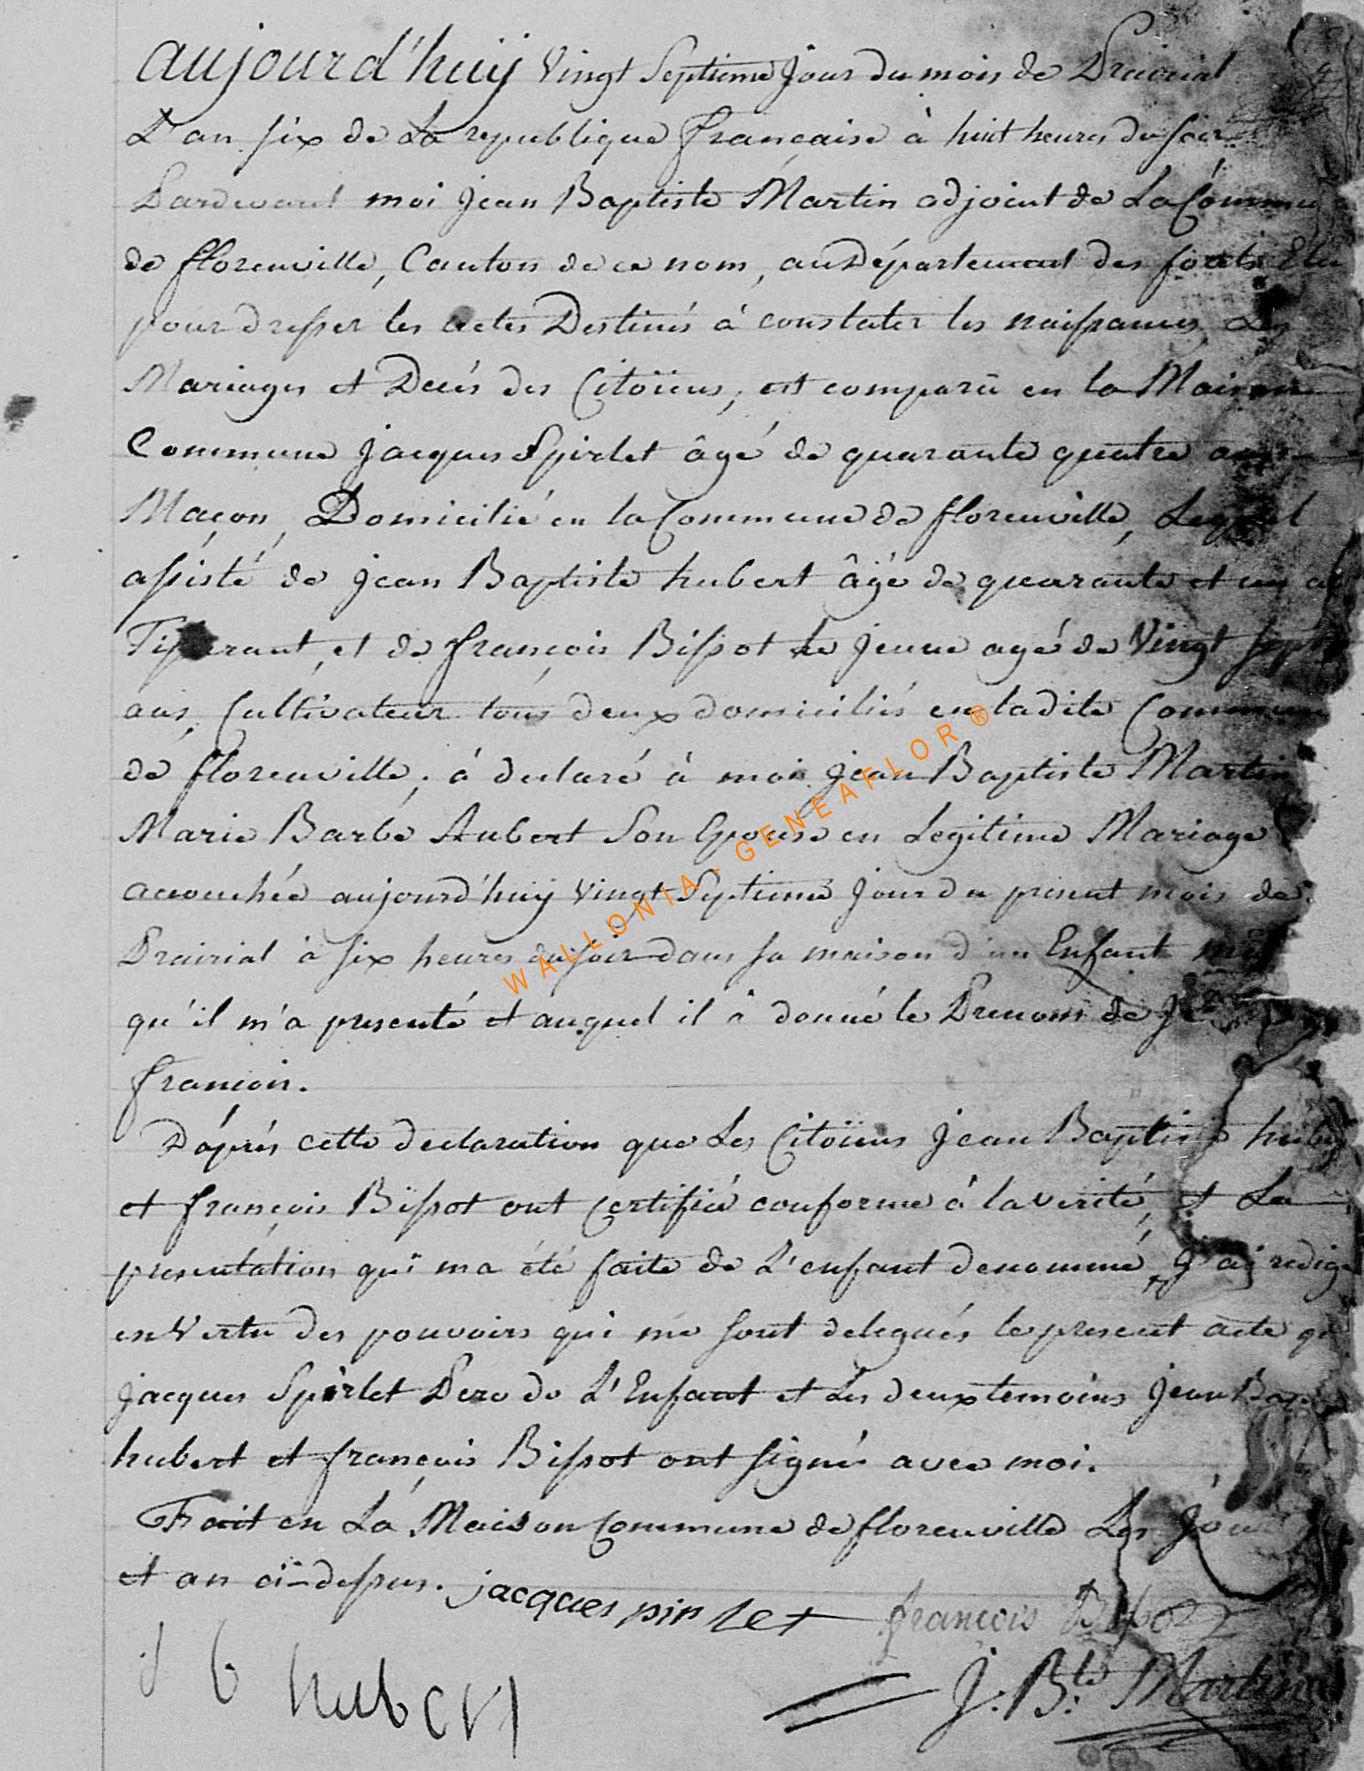 aujourd'huÿ Vingt Septieme Jour du mois de Prairial
L'an six de La republique française à huit heures du soir
Pardevant moi Jean Baptiste Martin adjoint de La Commu
de florenville, Canton de ce nom, au Département des forets Elu
pour dresser les actes Destinés à constater les naissances, Les
Mariages et Decés des Citoïens, est comparû en la Maison
Commune Jacques Spirlet âgé de quarante quatre ans
Maçon, Domicilié en la Commune de florenville, Lequel
assisté de Jean Baptiste hubert âgé de quarante et un
Tisserant, et de françois Bissot le Jeune agé de Vingt sept
ans, Cultivateur tous deux domiciliés en ladite Commune
de florenville, à declaré à moi Jean Baptiste Martin
Marie Barbe Aubert Son Epouse en Legitime Mariage
accouchée aujourd'huÿ Vingt Septieme Jour du present mois de
Prairial à six heures du soir dans sa maison d'un Enfant
qu'il m'a presenté et auquel il â donné le Prenom de
françois.
D'aprés cette declaration que Les Citoïens Jean Baptiste hubert
et françois Bissot ont Certifié conforme à la verité, et La
presentation qui m'a été faite de L'enfant denommé, J'ai redigé
en Vertu des pouvoirs qui me sont delegués le present acte
Jacques Spirlet Pere de L'Enfant et Les deux temoins Jean Bap
hubert et françois Bissot ont signé avec moi.
Fait en La Maison Commune de florenville Les Jour
et an ci-dessus. jacques pirlet françois Bissot
J b hubert J. B.te Martin
WALLONIA - GENEAFLOR ®